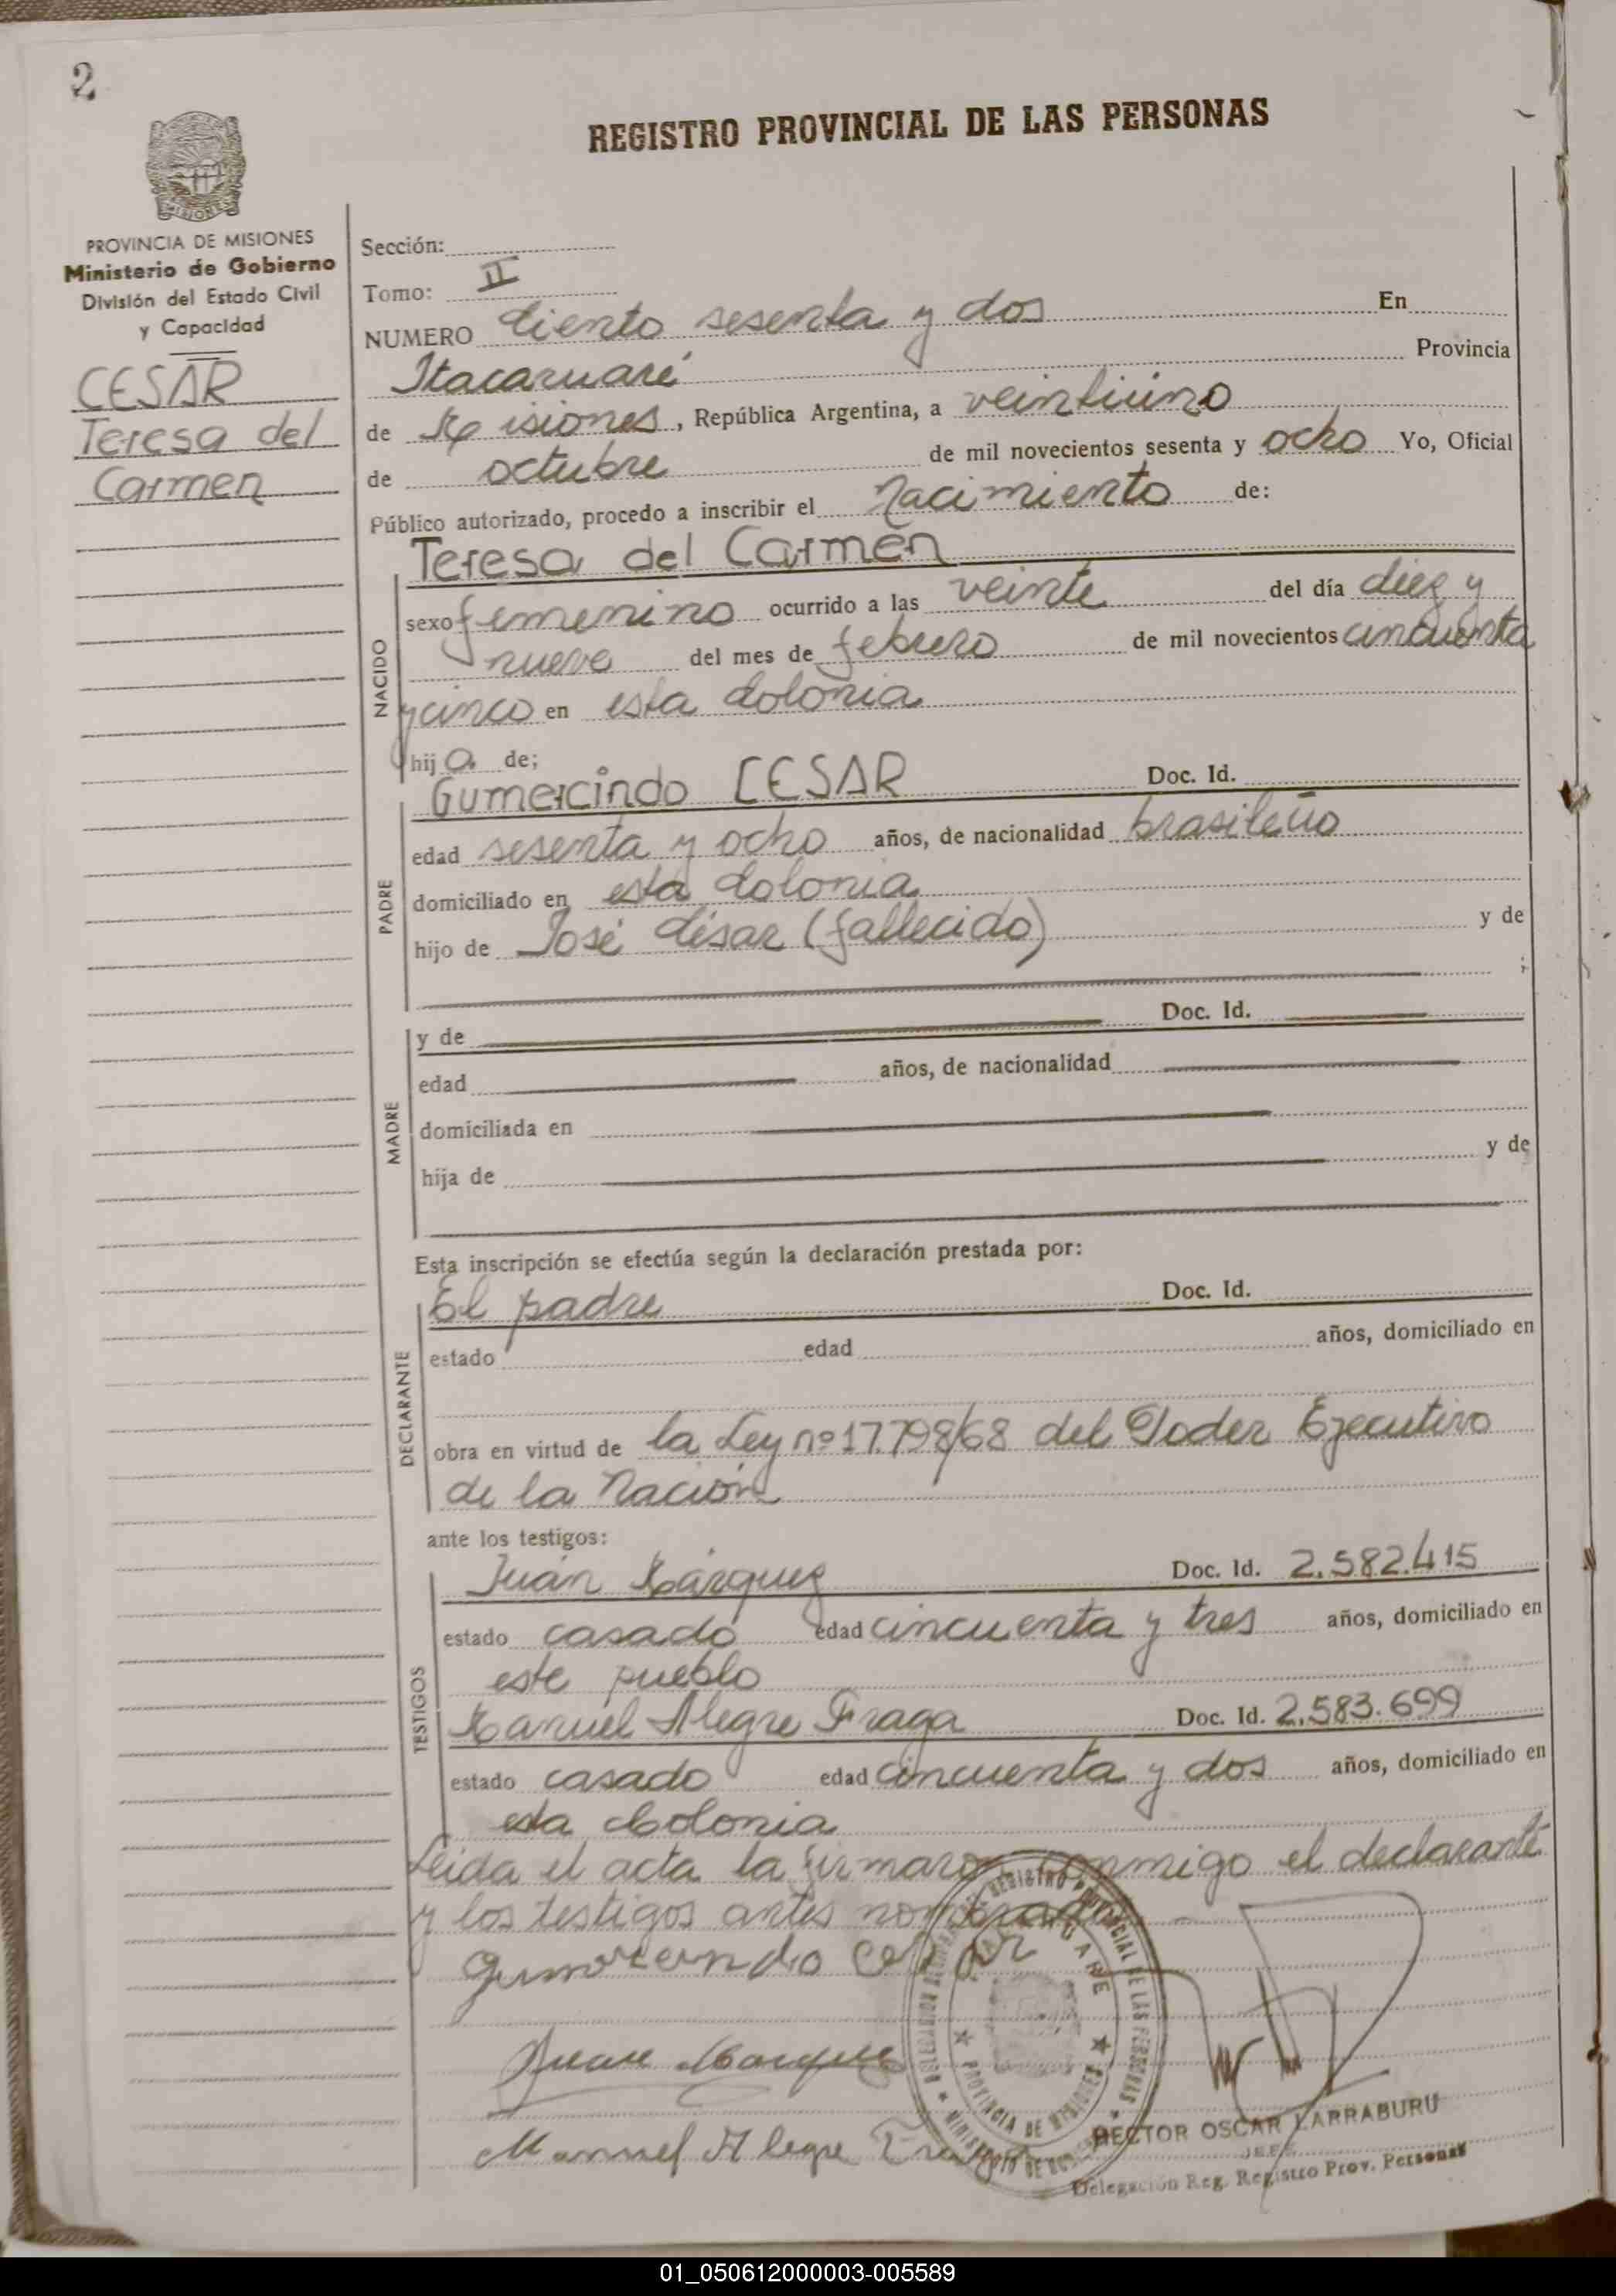 2
REGISTRO PROVINCIAL DE LAS PERSONAS
MISIONES
PROVINCIA DE MISIONES
Ministerio de Gobierno
División del Estado Civil
y Capacidad
CESAR
Teresa del
Carmen
Sección:
Tomo: II
NUMERO Ciento sesenta y dos En
Itacaruaré Provincia
de Misiones, República Argentina, a veintiúno
de octubre de mil novecientos sesenta y ocho Yo, Oficial
Público autorizado, procedo a inscribir el Nacimiento de:
NACIDO
Teresa del Carmen
sexo femenino ocurrido a las veinte del día diez y
nueve del mes de febrero de mil novecientos cincuenta
y cinco en esta Colonia
hija de;
PADRE
Gumercindo CESAR Doc. Id.
edad sesenta y ocho años, de nacionalidad brasileño
domiciliado en esta Colonia
hijo de José César (fallecido) y de
;
MADRE
y de Doc. Id.
edad años, de nacionalidad
domiciliada en
hija de y de
Esta inscripción se efectúa según la declaración prestada por:
DECLARANTE
El padre Doc. Id.
estado edad años, domiciliado en
obra en virtud de la Ley nº 17.798/68 del Poder Ejecutivo
de la Nación
ante los testigos:
TESTIGOS
Juán Márquez Doc. Id. 2.582.415
estado casado edad cincuenta y tres años, domiciliado en
este pueblo
Manuel Alegre Fraga Doc. Id. 2.583.699
estado casado edad cincuenta y dos años, domiciliado en
esta Colonia
Leída el acta la firmaron conmigo el declarante
y los testigos antes
Juan Marquez
Manuel Alegre
REGISTRO PROVINCIAL DE LAS PERSONAS
PROVINCIA DE MISIONES
HECTOR OSCAR LARRABURU
JEFE
Delegación Reg. Registro Prov. Personas
01_050612000003-005589